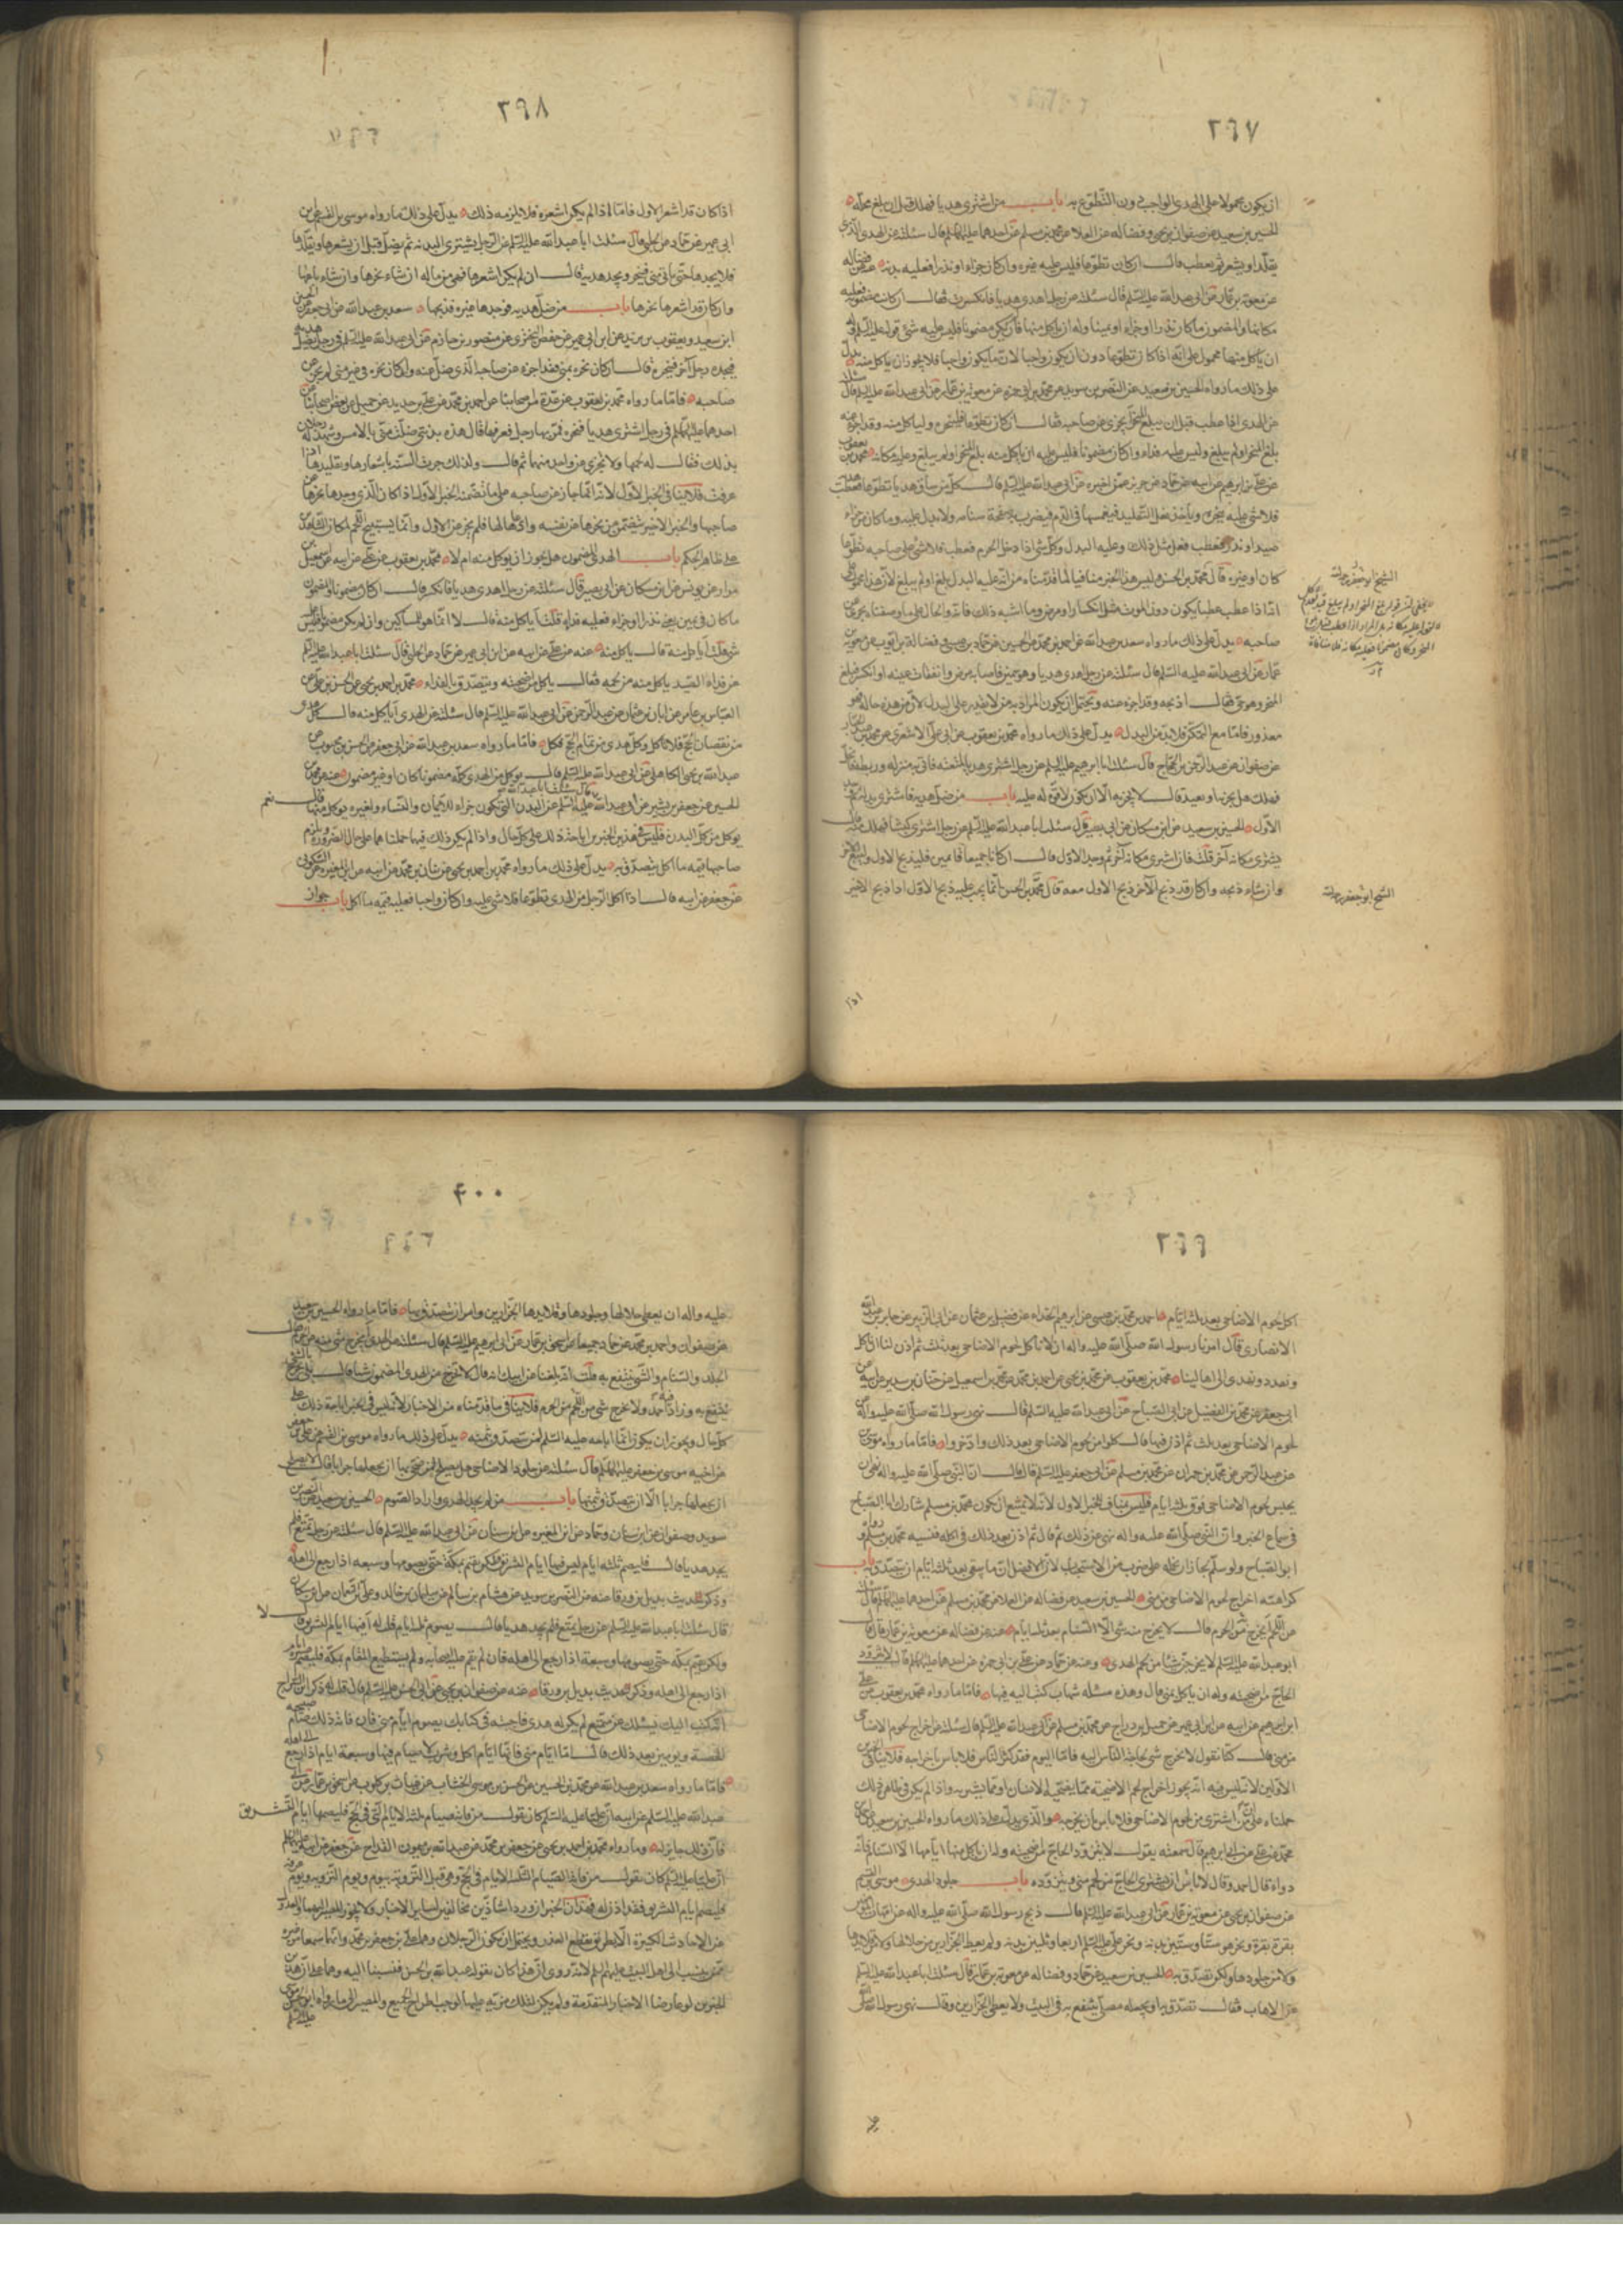 ٣٩٧
ان يكون محمولا على الهدي الواجب دون التطوع به باب من اشترى هديا فهلك قبل ان يبلغ محله
الحسين بن سعيد عن صفوان بن يحيى وفضالة عن العلا عن محمد بن مسلم عن احدهما عليهما قال سئلته عن الهدي الذي
يقلد او يشعر ثم يعطب قال ان كان تطوعا فليس عليه غيره وان كان جزاء او نذرا فعليه بدنه
عن معوية بن عمار عن ابي عبدالله عليه السلم قال سئلته عن رجل اهدى هديا فانكسرت فقال ان كان مضمونة فعليه
مكانها والمضمون ما كان نذرا او جزاء او يمينا وله ان ياكل منها فان لم يكن مضمونا فليس عليه شئ قوله عليه السلم
ان ياكل منها محمول على انه اذا كان تطوعا دون ان يكون واجبا لان ما يكون واجبا فلا يجوز ان ياكل منه يدل
على ذلك ما رواه الحسين بن سعيد عن النضر بن سويد عن محمد بن ابي حمزة عن معوية بن عمار عن ابي عبدالله عليه السلم قال سئلته
عن الهدي اذا عطب قبل ان يبلغ المنحر ايجزي عن صاحبه فقال ان كان تطوعا فلينحره ولياكل منه وقد اجزء عنه
بلغ المنحر اولم يبلغ وليس عليه فداء وان كان مضمونا فليس عليه ان ياكل منه بلغ المنحر اولم يبلغ وعليه مكانه محمد بن يعقوب
عن علي بن ابرهيم عن ابيه عن حماد عن حريز عمن اخبره عن ابي عبدالله عليه السلم قال كل من ساق هديا تطوعا فعطب
كان او غيره قال محمد بن الحسن وليس هذا الخبر منافيا لما قدمناه من ان عليه البدل بلغ اولم يبلغ لان هذا محمول على
صاحبه يدل على ذلك ما رواه سعد بن عبدالله عن احمد بن محمد عن الحسين عن حماد بن عيسى وفضالة بن ايوب عن معوية بن
عمار عن ابي عبدالله عليه السلم قال سئلته عن رجل اهدى هديا وهو سمين فاصابه مرض وانفقات عينه او انكسر فبلغ
المنحر وهو حي فقال اذبحه وقد اجزء عنه ويحتمل ان يكون المراد به من لا يقدر على البدل لان من هذه حاله فهو
معذور فاما مع التمكن فلابد من البدل يدل على ذلك ما رواه محمد بن يعقوب عن ابي علي الاشعري عن محمد بن عبد الجبار
عن صفوان عن عبد الرحمن بن الحجاج قال سئلت ابا ابرهيم عليه السلم عن رجل اشترى هديا لمتعته فاتى به منزله وربطه فانحل
فهلك هل يجزيه او يعيد قال لا يجزيه الا ان يكون لا قوة له عليه باب من ضل هديه فاشترى بدله ثم وجد
الاول الحسين بن سعيد عن ابن مسكان عن ابي بصير قال سئلت ابا عبدالله عليه السلم عن رجل اشترى كبشا فهلك منه قال
يشترى مكانه آخر قلت فان اشترى مكانه آخر ثم وجد الاول قال ان كانا جميعا قائمين فليذبح الاول وليبع الاخر
وان شاء ذبحه وان كان قد ذبح الآخر ذبح الاول معه قال محمد بن الحسن انما يجب عليه ذبح الاول اذا ذبح الاخير
الشيخ ابو جعفر
الشيخ ابو جعفر
اذا
٣٩٨
اذا كان قد اشعر الاول فاما اذا لم يكن اشعره فلا يلزمه ذلك يدل على ذلك ما رواه موسى بن القسم عن ابن
ابي عمير عن حماد عن الحلبي قال سئلت ابا عبدالله عليه السلم عن الرجل يشتري البدنه ثم يضل قبل ان يشعرها ويقلدها
فلا يجدها حتى ياتي منى فينحر ويجد هديه قال ان لم يكن اشعرها فهي من ماله ان شاء نحرها وان شاء باعها
وان كان قد اشعرها نحرها باب من ضل هديه فوجدها غيره فذبحها سعد بن عبدالله عن ابي جعفر عن الحسين
ابن سعيد ويعقوب بن يزيد عن ابن ابي عمير عن حفص البختري عن منصور بن حازم عن ابي عبدالله عليه السلم في رجل يضل هديه
فيجده رجل آخر فينحره قال ان كان نحره بمنى فقد اجزء عن صاحبه الذي ضل عنه وان كان نحره في غير منى لم يجز عن
صاحبه فاما ما رواه محمد بن يعقوب عن عدة من اصحابنا عن احمد بن محمد عن علي بن حديد عن جميل عن بعض اصحابنا عن
احدهما عليهما في رجل اشترى هديا فنحره فمر بها رجل فعرفها فقال هذه بدنتي ضلت مني بالامس وشهد له رجلان
بذلك فقال له لحمها ولا يجزي عن واحد منهما ثم قال ولذلك جرت السنة باشعارها وتقليدها اذا
عرفت فلا ينافي الخبر الاول لانه انما جاز عن صاحبه على ما تضمنه الخبر الاول اذا كان الذي وجدها نحرها عن
صاحبها والخبر الاخير يتضمن من نحرها عن نفسه
على ظاهر الحكم باب الهدي المضمون هل يجوز ان يوكل منه ام لا محمد بن يعقوب عن علي عن ابيه عن اسمعيل بن
مرار عن يونس عن ابن مسكان عن ابي بصير قال سئلته عن رجل اهدى هديا فانكسر قال ان كان مضمونا والمضمون
ما كان في يمين يعني نذر او جزاء فعليه فداء قلت اياكل منه قال لا انما هو للمساكين وان لم يكن مضمونا فليس عليه
شئ قلت اياكل منه قال ياكل منه عنه عن علي عن ابيه عن ابن ابي عمير عن حماد عن الحلبي قال سئلت ابا عبدالله عليه السلم
عن فداء الصيد ياكل منه من لحمه فقال ياكل من اضحيته ويتصدق بالفداء محمد بن احمد بن يحيى عن الحسن بن علي عن
العباس بن عامر عن ابان بن عثمان عن عبد الرحمن عن ابي عبدالله عليه السلم قال سئلته عن الهدي اياكل منه قال كل هدي
من نقصان الحج فلا تاكل وكل هدي من تمام الحج فكل فاما ما رواه سعد بن عبدالله عن ابي جعفر عن الحسن بن محبوب عن
عبدالله بن يحيى الكاهلي عن ابي عبدالله عليه السلم قال يوكل من الهدي كله مضمونا كان او غير مضمون عنه عن محمد بن
الحسين عن جعفر بن بشير عن ابي عبدالله عليه السلم عن البدن التي تكون جزاء الايمان والنساء ولغيره يوكل منها قال نعم
يوكل من كل البدن فليس في هذين الخبرين اباحة ذلك على كل حال واذا لم يكن ذلك فيهما حملناهما على حال الضرورة ويلزم
صاحبها قيمة ما اكل يتصدق به يدل على ذلك ما رواه محمد بن احمد بن يحيى عن بنان بن محمد عن ابيه عن ابن المغيره عن السكوني
عن جعفر عن ابيه قال اذا اكل الرجل من الهدي تطوعا فلا شئ عليه وان كان واجبا فعليه قيمة ما اكل باب جواز
٣٩٩
اكل لحوم الاضاحي بعد ثلثة ايام احمد بن محمد بن عيسى عن ابرهيم الحذاء عن فضيل بن عثمان عن ابي الزبير عن جابر بن عبدالله
الانصاري قال امرنا رسول الله صلى الله عليه واله ان لا ناكل لحوم الاضاحي بعد ثلث ثم اذن لنا ان ناكل
ونقدد ونهدي الى اهالينا محمد بن يعقوب عن محمد بن يحيى عن احمد بن محمد عن محمد بن اسمعيل عن حنان بن سدير عن ابيه عن
ابي جعفر عن محمد بن الفضيل عن ابي الصباح عن ابي عبدالله عليه السلم قال نهى رسول الله صلى الله عليه واله عن
لحوم الاضاحي بعد ثلث ثم اذن فيها قال كلوا من لحوم الاضاحي بعد ذلك وادخروا فاما ما رواه موسى بن
عبد الرحمن عن محمد بن حمران عن محمد بن مسلم عن ابي جعفر عليه السلم قال قال ان النبي صلى الله عليه واله نهى ان
يحبس لحوم الاضاحي فوق ثلثة ايام فليس بمناف للخبر الاول لانه لا يمتنع ان يكون محمد بن مسلم شارك ابا الصباح
في سماع الخبر وان النبي صلى الله عليه واله نهى عن ذلك ثم قال ثم اذن بعد ذلك في اكله فنسيه محمد بن مسلم ورواه
ابو الصباح ولو سلم لجاز ان نحمله على ضرب من الاستحباب لان الافضل ان ما يبقى بعد ثلثة ايام ان يتصدق به باب
كراهية اخراج لحوم الاضاحي من منى الحسين بن سعيد عن فضالة عن العلا عن محمد بن مسلم عن احدهما عليهما قال سئلته
عن اللحم ايخرج من الحرم قال لا يخرج منه شئ الا السنام بعد ثلثة ايام عنه عن فضالة عن معوية بن عمار قال قال
ابو عبدالله عليه السلم لا تخرجن شيئا من لحم الهدي وعنه عن حماد عن علي بن ابي حمزة عن احدهما عليهما قال لا يتزود
الحاج من اضحيته وله ان ياكل بمنى قال وهذه مسئلة شهاب كتب اليه فيها فاما ما رواه محمد بن يعقوب عن علي
ابن ابرهيم عن ابيه عن ابن ابي عمير عن جميل بن دراج عن محمد بن مسلم عن ابي عبدالله عليه السلم قال سئلته عن اخراج لحوم الاضاحي
من منى قال كنا نقول لا يخرج شئ لحاجة الناس اليه فاما اليوم فقد كثر الناس فلا باس باخراجه فلا ينافي الخبرين
الاولين لانه ليس فيه انه يجوز اخراج لحم الاضحية مما يضحيه الانسان او مما يشتريه واذا لم يكن في ظاهره ذلك
حملناه على من اشترى من لحوم الاضاحي فلا باس بان يخرجه والذي يدل على ذلك ما رواه الحسين بن سعيد عن
محمد عن علي عن ابي ابرهيم قال سمعته يقول لا يتزود الحاج من اضحيته وله ان ياكل منها ايامها الا السنام فانه
دواء قال احمد وقال لا باس ان يشتري الحاج من لحم منى ويتزوده باب جلود الهدي موسى بن القسم
عن صفوان بن يحيى عن معوية بن عمار عن ابي عبدالله عليه السلم قال ذبح رسول الله صلى الله عليه واله عن امهات المؤمنين
بقرة بقرة ونحر هو ستا وستين بدنه ونحر علي عليه السلم اربعا وثلثين بدنه ولم يعط الجزارين من جلالها ولا قلائدها
ولا من جلودها ولكن تصدق به الحسين بن سعيد عن حماد وفضالة عن معوية بن عمار قال سئلت ابا عبدالله عليه السلم
عن الاهاب فقال تصدق به او يجعله مصلى ينتفع به في البيت ولا يعطى الجزارين وقال نهى رسول الله صلى الله
٤٠٠
عليه واله ان يعطى جلالها وجلودها وقلايدها الجزارين وامر ان يتصدق بها فاما ما رواه الحسين بن سعيد
عن صفوان واحمد بن محمد عن حماد جميعا عن اسحق بن عمار عن ابي ابرهيم عليه السلم قال سئلته عن الهدي ايخرج شئ منه عن الحرم قال
الجلد والسنام والشئ ينتفع به قلت انه بلغنا عن ابيك انه قال لا يخرج من الهدي المضمون شيئا قال بلى يخرج بالشئ
ينتفع به وزاد فيه احمد ولا يخرج شئ من اللحم من الحرم فلا ينافي ما قدمناه من الاخبار لانه ليس في الخبر اباحة ذلك على
كل حال ويجوز ان يكون انما اباحه عليه السلم لمن يتصدق بثمنه يدل على ذلك ما رواه موسى بن القسم عن علي بن جعفر
عن اخيه موسى بن جعفر عليهما قال سئلته عن جلود الاضاحي هل يصلح لمن ضحى بها ان يجعلها جرابا قال لا يصلح
ان يجعلها جرابا الا ان يتصدق بثمنها باب من لم يجد الهدي واراد الصوم الحسين بن سعيد عن النضر بن
سويد وصفوان عن ابن سنان وحماد عن ابن المغيره عن ابن سنان عن ابي عبدالله عليه السلم قال سئلته عن رجل تمتع فلم
يجد هديا قال فليصم ثلثة ايام ليس فيها ايام التشريق ولكن يقيم بمكة حتى يصومها وسبعة اذا رجع الى اهله
وذكر حديث بديل بن ورقا عنه عن النضر بن سويد عن هشام بن سالم عن سليمان بن خالد وعلي بن النعمان عن ابن مسكان
قال سئلت ابا عبدالله عليه السلم عن رجل تمتع فلم يجد هديا قال يصوم ثلثة ايام قلت له افيها ايام التشريق قال لا
ولكن يقيم بمكة حتى يصومها وسبعة اذا رجع الى اهله فان لم يقم عليه اصحابه ولم يستطع المقام بمكة فليصم عشرة ايام
اذا رجع الى اهله وذكر حديث بديل بن ورقا عنه عن صفوان بن يحيى عن ابي الحسن عليه السلم قال قلت له ذكر ابن السراج
انه كتب اليك يسئلك عن متمتع لم يكن له هدي فاجبته في كتابك يصوم ايام منى فان فاته ذلك صام صبيحة
الحصبة ويومين بعد ذلك قال اما ايام منى فانها ايام اكل وشرب لا صيام فيها وسبعة ايام اذا رجع الى اهله
فاما ما رواه سعد بن عبدالله عن محمد بن الحسين عن الحسن بن موسى الخشاب عن غياث بن كلوب عن اسحق بن عمار عن ابي
عبدالله عليه السلم عن ابيه ان عليا عليه السلم كان يقول من فاته صيام الثلثة الايام التي في الحج فليصمها ايام التشريق
فان ذلك جايز له وما رواه محمد بن احمد بن يحيى عن جعفر بن محمد عن عبدالله بن ميمون القداح عن جعفر عن ابيه عليهما
ان عليا عليه السلم كان يقول من فاته صيام الثلثة الايام في الحج وهي قبل التروية بيوم ويوم التروية ويوم عرفة
فليصم ايام التشريق فقد اذن له فهذان الخبران وردا شاذين مخالفين لساير الاخبار ولا يجوز المصير اليهما والعدول
عن الاحاديث الكثيرة الا بطريق يقطع العذر ويحتمل ان يكون الرجلان وهما علي بن جعفر بن محمد وانهما سمعا من غيره
ممن ينسب الى اهل البيت عليهم السلم لانه روي ان هذا كان يقوله عبدالله بن الحسن فنسبا اليه وهما على ان هذين
الخبرين لو عارضا الاخبار المتقدمة ولم يكن لتلك مزية عليهما لوجب اطراح الجميع والمصير الى ما رواه ابو الحسن موسى
عليه السلم